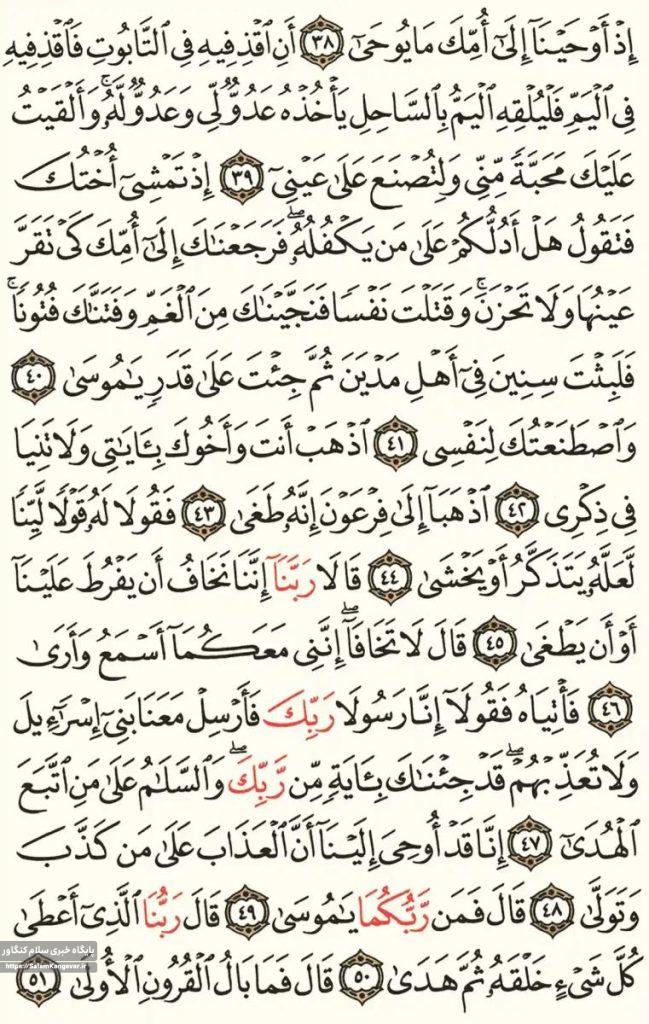 إِذْ أَوْحَيْنَآ إِلَىٰٓ أُمِّكَ مَا يُوحَىٰٓ ﴿٣٨﴾ أَنِ ٱقْذِفِيهِ فِى ٱلتَّابُوتِ فَٱقْذِفِيهِ
فِى ٱلْيَمِّ فَلْيُلْقِهِ ٱلْيَمُّ بِٱلسَّاحِلِ يَأْخُذْهُ عَدُوٌّ لِّى وَعَدُوٌّ لَّهُۥ ۚ وَأَلْقَيْتُ
عَلَيْكَ مَحَبَّةً مِّنِّى وَلِتُصْنَعَ عَلَىٰ عَيْنِىٓ ﴿٣٩﴾ إِذْ تَمْشِىٓ أُخْتُكَ
فَتَقُولُ هَلْ أَدُلُّكُمْ عَلَىٰ مَن يَكْفُلُهُۥ ۖ فَرَجَعْنَاكَ إِلَىٰٓ أُمِّكَ كَىْ تَقَرَّ
عَيْنُهَا وَلَا تَحْزَنَ ۚ وَقَتَلْتَ نَفْسًا فَنَجَّيْنَاكَ مِنَ ٱلْغَمِّ وَفَتَنَّاكَ فُتُونًا ۚ
فَلَبِثْتَ سِنِينَ فِىٓ أَهْلِ مَدْيَنَ ثُمَّ جِئْتَ عَلَىٰ قَدَرٍ يَامُوسَىٰ ﴿٤٠﴾
وَٱصْطَنَعْتُكَ لِنَفْسِى ﴿٤١﴾ ٱذْهَبْ أَنتَ وَأَخُوكَ بِـَٔايَاتِى وَلَا تَنِيَا
فِى ذِكْرِى ﴿٤٢﴾ ٱذْهَبَآ إِلَىٰ فِرْعَوْنَ إِنَّهُۥ طَغَىٰ ﴿٤٣﴾ فَقُولَا لَهُۥ قَوْلًا لَّيِّنًا
لَّعَلَّهُۥ يَتَذَكَّرُ أَوْ يَخْشَىٰ ﴿٤٤﴾ قَالَا رَبَّنَآ إِنَّنَا نَخَافُ أَن يَفْرُطَ عَلَيْنَآ
أَوْ أَن يَطْغَىٰ ﴿٤٥﴾ قَالَ لَا تَخَافَآ ۖ إِنَّنِى مَعَكُمَآ أَسْمَعُ وَأَرَىٰ
﴿٤٦﴾ فَأْتِيَاهُ فَقُولَآ إِنَّا رَسُولَا رَبِّكَ فَأَرْسِلْ مَعَنَا بَنِىٓ إِسْرَآءِيلَ
وَلَا تُعَذِّبْهُمْ ۖ قَدْ جِئْنَاكَ بِـَٔايَةٍ مِّن رَّبِّكَ ۖ وَٱلسَّلَامُ عَلَىٰ مَنِ ٱتَّبَعَ
ٱلْهُدَىٰٓ ﴿٤٧﴾ إِنَّا قَدْ أُوحِىَ إِلَيْنَآ أَنَّ ٱلْعَذَابَ عَلَىٰ مَن كَذَّبَ
وَتَوَلَّىٰ ﴿٤٨﴾ قَالَ فَمَن رَّبُّكُمَا يَامُوسَىٰ ﴿٤٩﴾ قَالَ رَبُّنَا ٱلَّذِىٓ أَعْطَىٰ
كُلَّ شَىْءٍ خَلْقَهُۥ ثُمَّ هَدَىٰ ﴿٥٠﴾ قَالَ فَمَا بَالُ ٱلْقُرُونِ ٱلْأُولَىٰ ﴿٥١﴾
پایگاه خبری سلام کنگاور
https://SalamKangavar.ir